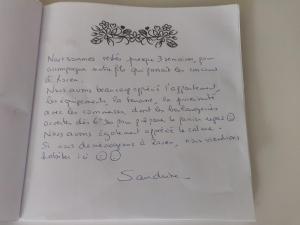 Nous sommes restés presque 3 semaines, pour
accompagner notre fils qui passait les concours
à Rouen.
Nous avons beaucoup apprécié l'appartement,
les équipements, la terrasse, la proximité
avec les commerces dont les boulangeries
ouvertes dès 6h30 pour préparer le panier repas ☺
Nous avons également apprécié le calme.
Si nous déménageons à Rouen, nous viendrons
habiter ici ☺ ☺
Sandrine